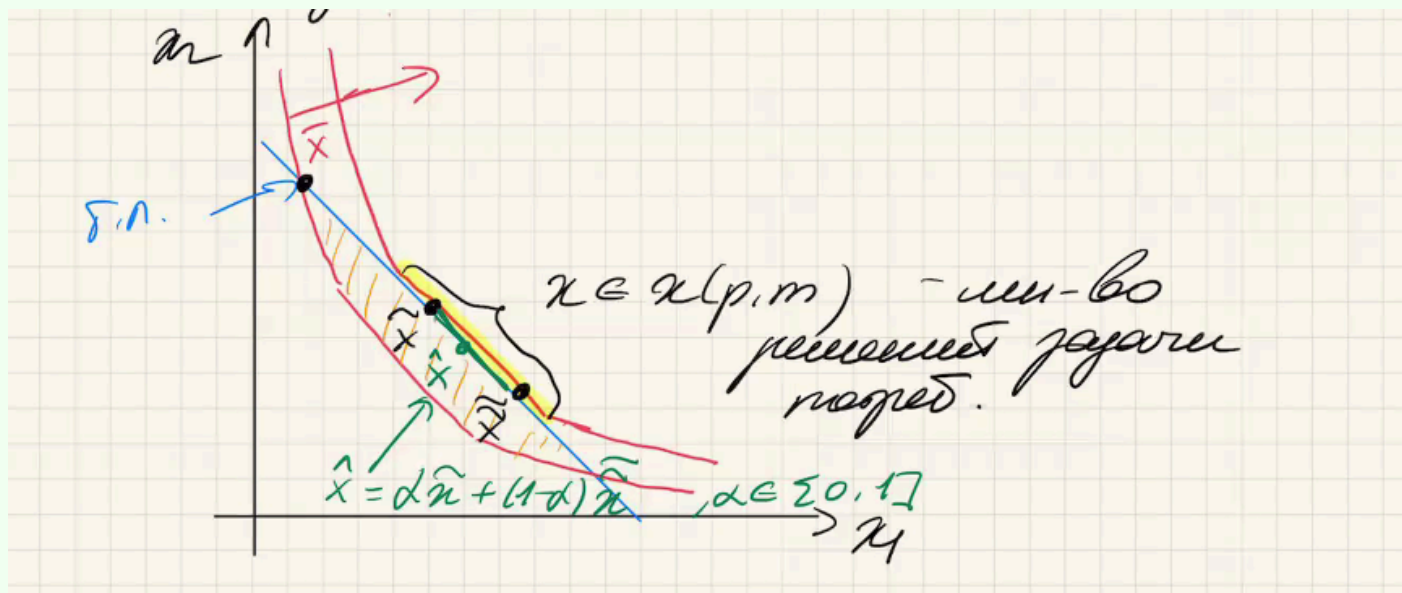 x₂
x̄
б.л.
x ∈ x(p,m) - мн-во
решений задачи
потреб.
x̃
x̂
x̃̃
x̂ = αx̃ + (1-α)x̃̃, α∈[0,1]
x₁